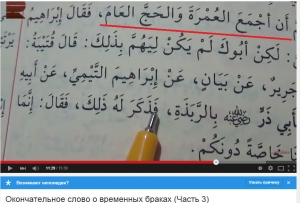 أَنْ أَجْمَعَ الْعُمْرَةَ وَالْحَجَّ الْعَامَ، فَقَالَ إِبْرَاهِيمُ
: لَكِنْ أَبُوكَ لَمْ يَكُنْ لِيَهُمَّ بِذَلِكَ: قَالَ قُتَيْبَةُ:
جَرِيرٌ، عَنْ بَيَانٍ، عَنْ إِبْرَاهِيمَ التَّيْمِيِّ، عَنْ أَبِيهِ
أَبِي ذَرٍّ ﷺ بِالرَّبَذَةِ، فَذَكَرَ لَهُ ذَلِكَ، فَقَالَ: إِنَّمَا
خَاصَّةً دُونَكُمْ.
Возникают неполадки? Узнать причину
Окончательное слово о временных браках (Часть 3)